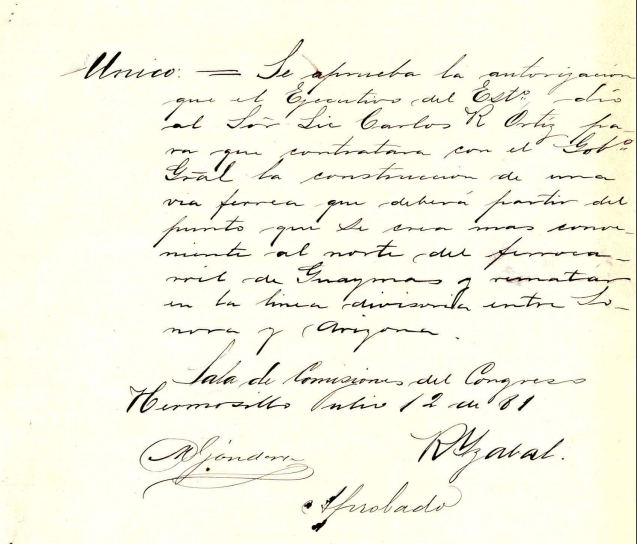 Unico: = Se aprueba la autorización
que el Ejecutivo del Est.º dio
al Sór Lic Carlos R Ortiz pa-
ra que contratara con el Gob.º
Grãl la construccion de una
via ferrea que deberá partir del
punto que se crea mas conve-
niente al norte del ferroca-
rril de Guaymas y rematar
en la linea divisoria entre So-
nora y Arizona.
Sala de Comisiones del Congreso
Hermosillo Julio 12 de 81
R Yzabal.
Aprobado